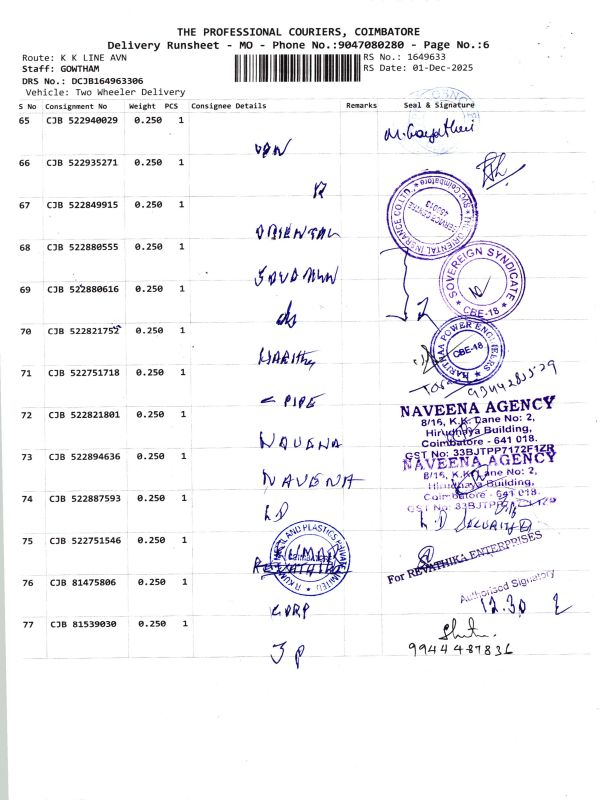 THE PROFESSIONAL COURIERS, COIMBATORE
Delivery Runsheet - MO - Phone No.:9047080280 - Page No.:6
Route: K K LINE AVN
RS No.: 1649633
Staff: GOWTHAM
RS Date: 01-Dec-2025
DRS No.: DCJB164963306
Vehicle: Two Wheeler Delivery
S No Consignment No Weight PCS Consignee Details Remarks Seal & Signature
65 CJB 522940029 0.250 1
M. Gayathri
66 CJB 522935271 0.250 1
67 CJB 522849915 0.250 1
ORIENTAL
THE ORIENTAL INSURANCE CO.LTD.
SERVICE CENTRE
Coimbatore
68 CJB 522880555 0.250 1
SOVEREIGN SYNDICATE
CBE-18
69 CJB 522880616 0.250 1
70 CJB 522821752 0.250 1
HARITHA
HARITHAA POWER ENGINEERS
CBE-18
71 CJB 522751718 0.250 1
PIPE
72 CJB 522821801 0.250 1
NAVENA
NAVEENA AGENCY
8/16, K.K. Lane No: 2,
Hirudhaya Building,
Coimbatore - 641 018.
GST No: 33BJTPP7172F1ZR
73 CJB 522894636 0.250 1
NAVENA
NAVEENA AGENCY
8/16, K.K. Lane No: 2,
Hirudhaya Building,
Coimbatore - 641 018.
74 CJB 522887593 0.250 1
LD
L.D SECURITIES
75 CJB 522751546 0.250 1
KUMAR
For REVATHIKA ENTERPRISES
Authorised Signatory
76 CJB 81475806 0.250 1
CORP
12.30
77 CJB 81539030 0.250 1
JP
9944487831